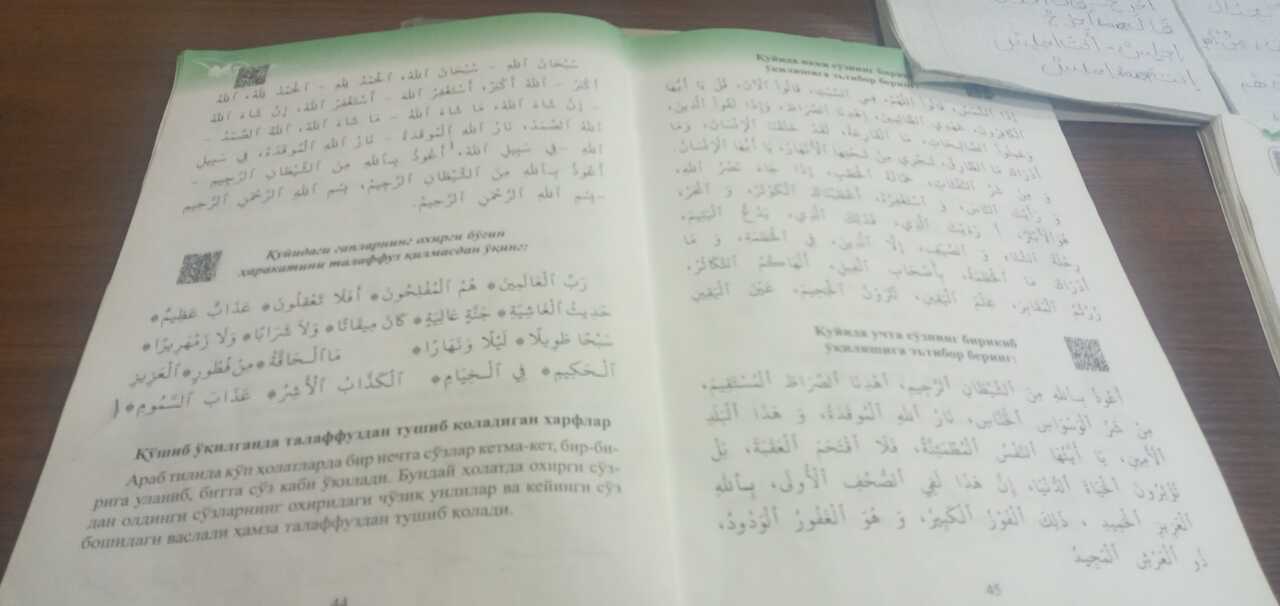 سُبْحَانَ اللهِ – سُبْحَانَ اللهْ، اَلْحَمْدُ لِلهِ – اَلْحَمْدُ لِلهْ، اَللهُ
أَكْبَرُ – اَللهُ أَكْبَرْ، أَسْتَغْفِرُ اللهَ – أَسْتَغْفِرُ اللهْ، إِنْ شَاءَ اللهُ
– إِنْ شَاءَ اللهْ، مَا شَاءَ اللهُ – مَا شَاءَ اللهْ، اَللهُ الصَّمَدُ –
اَللهُ الصَّمَدْ، نَارُ اللهِ الْمُوقَدَةُ – نَارُ اللهِ الْمُوقَدَهْ، فِي سَبِيلِ
اللهِ – فِي سَبِيلِ اللهْ، أَعُوذُ بِاللهِ مِنَ الشَّيْطَانِ الرَّجِيمِ –
أَعُوذُ بِاللهِ مِنَ الشَّيْطَانِ الرَّجِيمْ، بِسْمِ اللهِ الرَّحْمٰنِ الرَّحِيمِ
– بِسْمِ اللهِ الرَّحْمٰنِ الرَّحِيمْ.
Қуйидаги гапларнинг охирги бўғин
ҳаракатини талаффуз қилмасдан ўқинг:
رَبُّ الْعَالَمِينَ * هُمُ الْمُفْلِحُونَ * أَفَلَا تَعْقِلُونَ * عَذَابٌ عَظِيمٌ *
حَدِيثُ الْغَاشِيَةِ * جَنَّةٍ عَالِيَةٍ * كَانَ مِيقَاتًا * وَلَا شَرَابًا * وَلَا زَمْهَرِيرًا *
سَبْحًا طَوِيلًا * لَيْلًا وَنَهَارًا * مَا الْحَاقَّةُ * مِنْ فُطُورٍ * الْعَزِيزِ
الْحَكِيمِ * فِي الْخِيَامِ * الْكَذَّابُ الْأَشِرُ * عَذَابَ السَّمُومِ * (
Қўшиб ўқилганда талаффуздан тушиб қоладиган харфлар
Араб тилида кўп ҳолатларда бир нечта сўзлар кетма-кет, бир-би-
рига уланиб, битта сўз каби ўқилади. Бундай ҳолатда охирги сўз-
дан олдинги сўзларнинг охиридаги чўзиқ унлилар ва кейинги сўз
бошидаги васлали ҳамза талаффуздан тушиб қолади.
44
Қуйида икки сўзнинг бирикиб
ўқилишига эътибор беринг:
إِذَا الشَّمْسُ، قَالُوا اللّٰهُمَّ، فِي السَّبْتِ، قَالُوا الْآنَ، قُلْ يَا أَيُّهَا
الْكَافِرُونَ، اِهْدِنَا الصِّرَاطَ، وَإِذَا لَقُوا الَّذِينَ،
وَعَمِلُوا الصَّالِحَاتِ، مَا الْقَارِعَةُ، لَقَدْ خَلَقْنَا الْإِنْسَانَ، وَمَا
أَدْرَاكَ مَا الطَّارِقُ، تَجْرِي مِنْ تَحْتِهَا الْأَنْهَارُ، يَا أَيُّهَا الْإِنْسَانُ،
وَ مِنْ شَرِّ النَّفَّاثَاتِ، حَمَّالَةَ الْحَطَبِ، إِذَا جَاءَ نَصْرُ اللهِ،
وَ رَأَيْتَ النَّاسَ، وَ اسْتَغْفِرْهُ، أَعْطَيْنَاكَ الْكَوْثَرَ، وَ انْحَرْ،
هُوَ الْأَبْتَرُ، أَ رَأَيْتَ الَّذِي، فَذٰلِكَ الَّذِي، يَدُعُّ الْيَتِيمَ،
رِحْلَةَ الشِّتَاءِ، وَ الصَّيْفِ، إِلَّا الَّذِينَ، فِي الْحُطَمَةِ، وَ مَا
أَدْرَاكَ مَا الْحُطَمَةُ، بِأَصْحَابِ الْفِيلِ، أَلْهَاكُمُ التَّكَاثُرُ،
زُرْتُمُ الْمَقَابِرَ، عِلْمَ الْيَقِينِ، لَتَرَوُنَّ الْجَحِيمَ، عَيْنَ الْيَقِينِ
Қуйида учта сўзнинг бирикиб
ўқилишига эътибор беринг:
أَعُوذُ بِاللهِ مِنَ الشَّيْطَانِ الرَّجِيمِ، اِهْدِنَا الصِّرَاطَ الْمُسْتَقِيمَ،
مِنْ شَرِّ الْوَسْوَاسِ الْخَنَّاسِ، نَارُ اللهِ الْمُوقَدَةُ، وَ هٰذَا الْبَلَدِ
الْأَمِينِ، يَا أَيَّتُهَا النَّفْسُ الْمُطْمَئِنَّةُ، فَلَا اقْتَحَمَ الْعَقَبَةَ، بَلْ
تُؤْثِرُونَ الْحَيَاةَ الدُّنْيَا، إِنَّ هٰذَا لَفِي الصُّحُفِ الْأُولَى، بِاللهِ
الْعَزِيزِ الْحَمِيدِ، ذٰلِكَ الْفَوْزُ الْكَبِيرُ، وَ هُوَ الْغَفُورُ الْوَدُودُ،
ذُو الْعَرْشِ الْمَجِيدُ
45